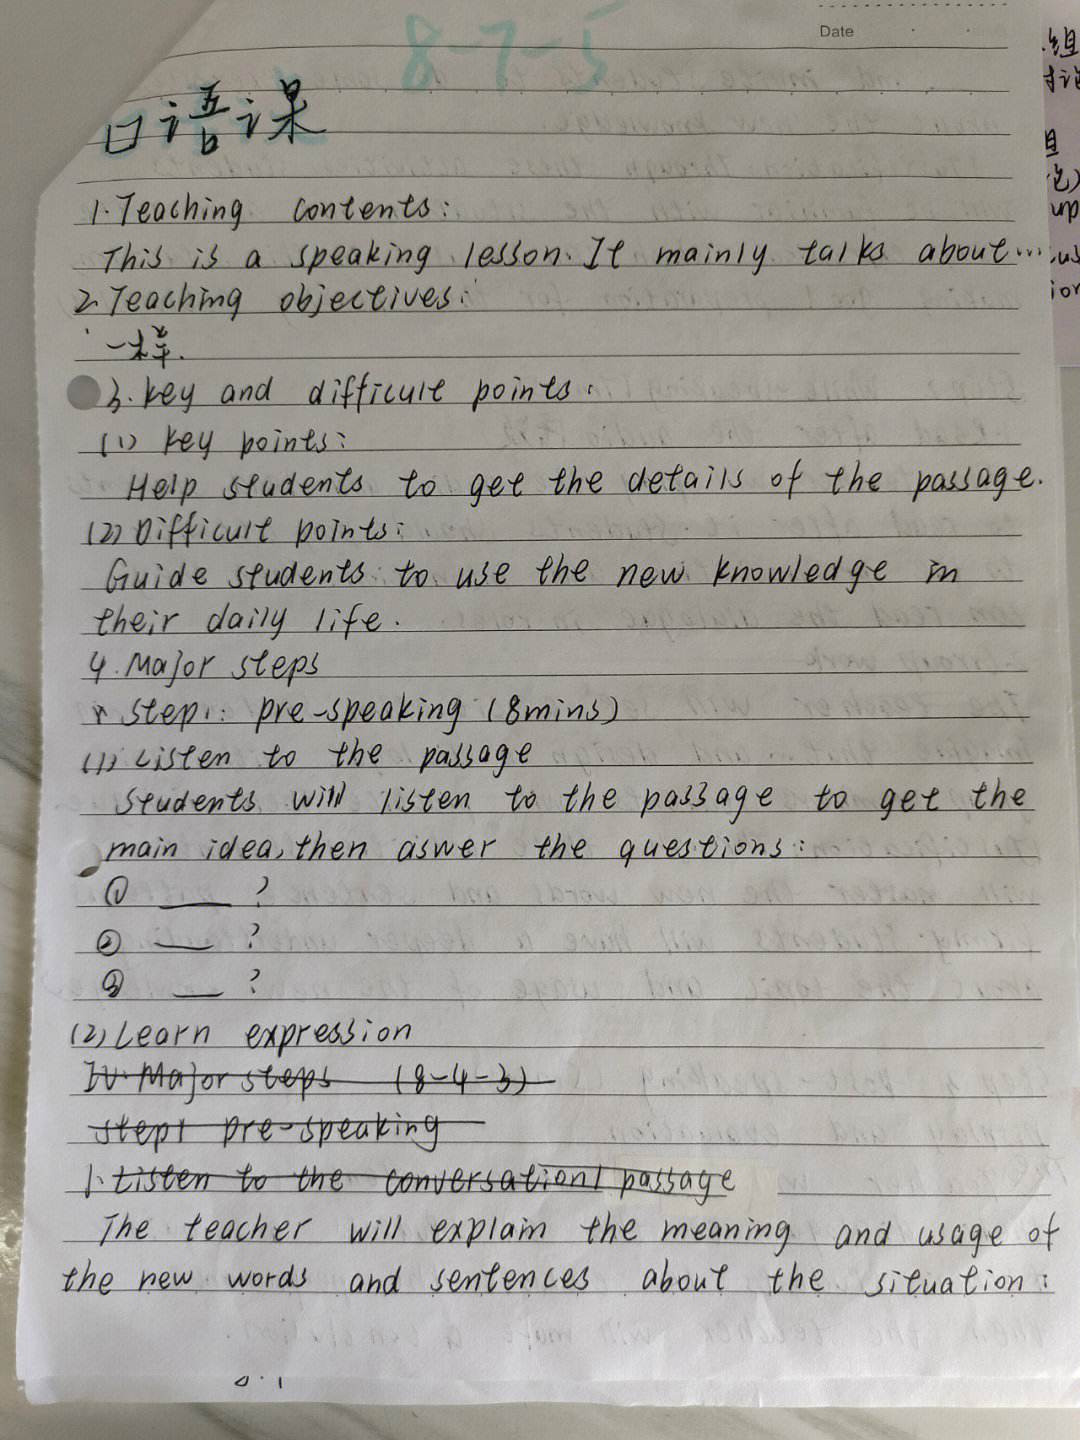 Date
8-7-5
口语课
1. Teaching contents:
This is a speaking lesson. It mainly talks about...
2. Teaching objectives:
一样.
3. key and difficult points:
(1) key points:
Help students to get the details of the passage.
(2) Difficult points:
Guide students to use the new knowledge in
their daily life.
4. Major steps
step1: pre-speaking (8mins)
(1) Listen to the passage
students will listen to the passage to get the
main idea, then aswer the questions:
① __ ?
② __ ?
③ __ ?
(2) Learn expression
IV. Major steps (8-4-3)
step1 pre-speaking
1. Listen to the conversation/passage
The teacher will explain the meaning and usage of
the new words and sentences about the situation: